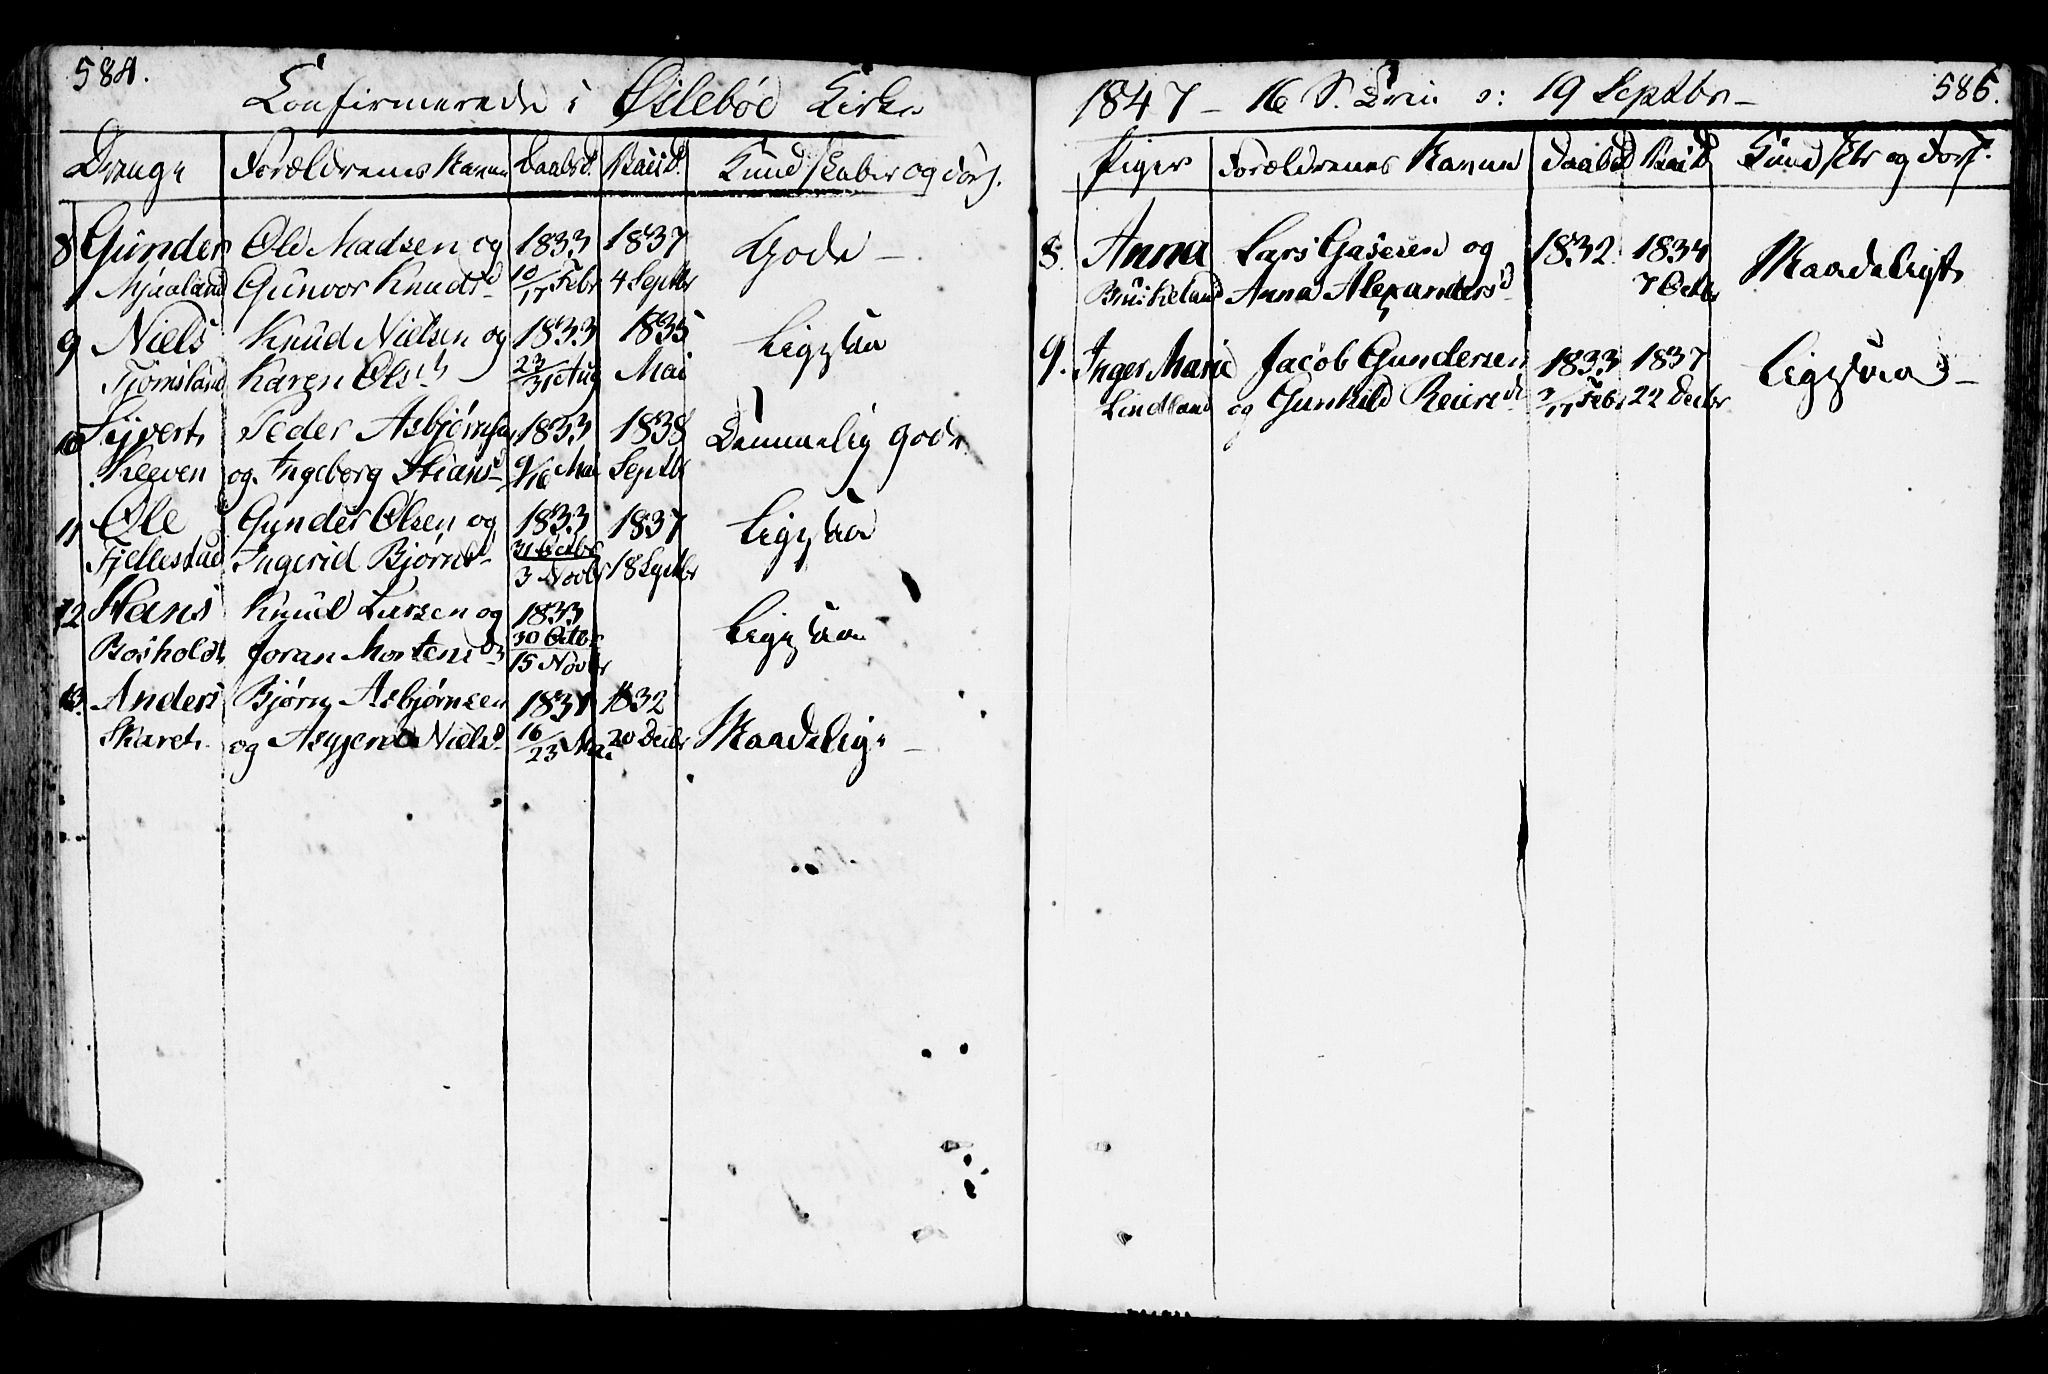 584.
Confirmerede i Øslebøe Kirke
Drenge Forældrenes Navne Daabsd. Vacc.d. Kundskaber og Forh.
8 Gunder Ole Madsen og 1833 1837 Gode –
Mjuoland Gunvor Knudsd 10/17 Febr 4 Septbr
9 Niels Knud Nielsen og 1833 1835 Ligesaa
Tjomsland Karen Olsd 23/31 Aug Mai
10 Sÿvert Peder Asbjørnsen 1833 1838 Temmelig gode
Kleven og Ingeborg Stiansd 9/16 Mai Septbr
11 Ole Gunder Olsen og 1833 1837 Ligesaa
Fjellestad Ingerid Bjørnsd 31 Octbr/3 Novbr 18 Septbr
12 Hans Knud Larsen og 1833 Ligesaa
Bosholdt Joran Mortensd 30 Octbr/15 Novbr
13. Anders Bjørn Asbjørnsen 1831 1832 Maadelige –
Skaret og Asgjerd Nielsd 16/23 Mai 20 Decbr
586.
1847 – 16 S. Trin ɔ: 19 Septbr –
Piger Forældrenes Navne Daabsd Vacc.d Kundsk. og Forh.
8. Anna Lars Gasesen og 1832. 1834 Maadeligt
Anna Alexandersd 7 Octbr
9. Inger Marie Jacob Gundersen 1833 1837 Ligesaa –
Lindland og Gunhild Reiersd /17 Febr 22 Decbr